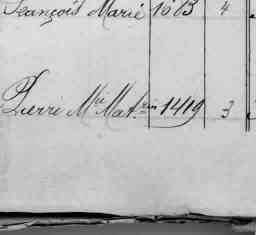 François Marie 1683 4
Pierre Mie Mat.rin 1419 3